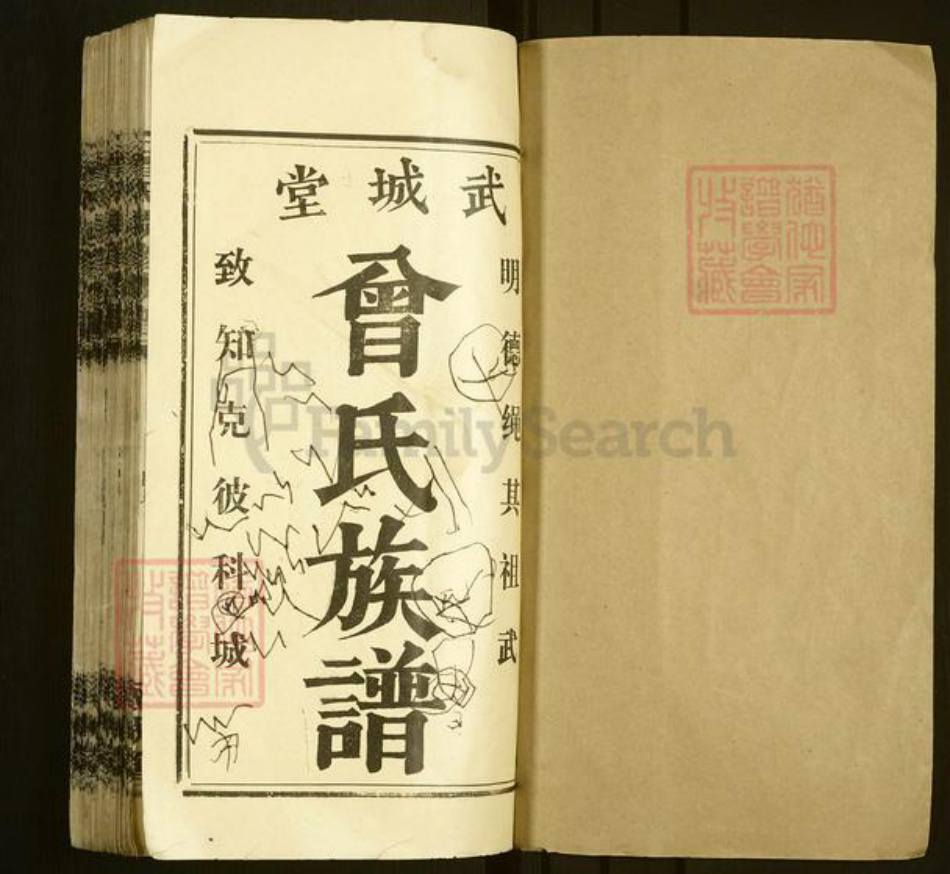 武城堂
明德绳其祖武
曾氏族譜
致知克彼科城
FamilySearch
譜學會
收藏